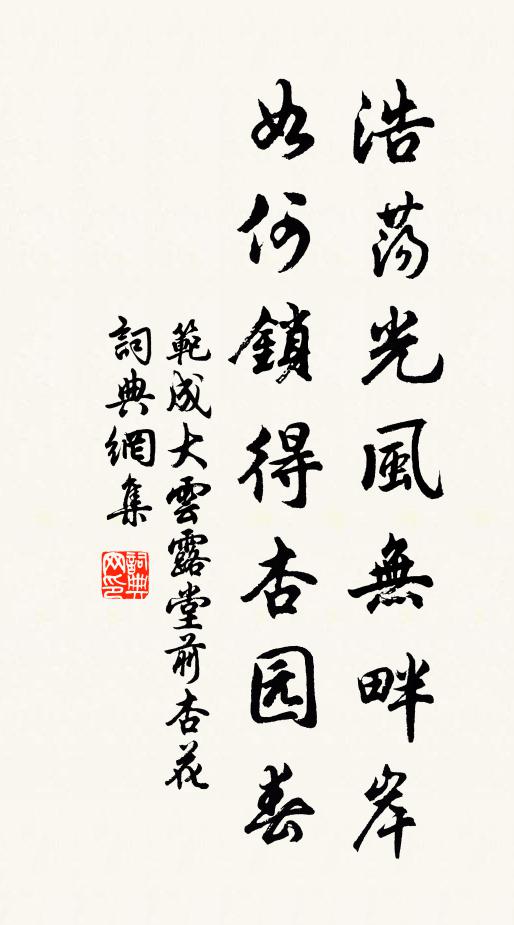 浩蕩光風無畔岸
如何鎖得杏园春
範成大雲露堂前杏花
詞典網集
詞典网印